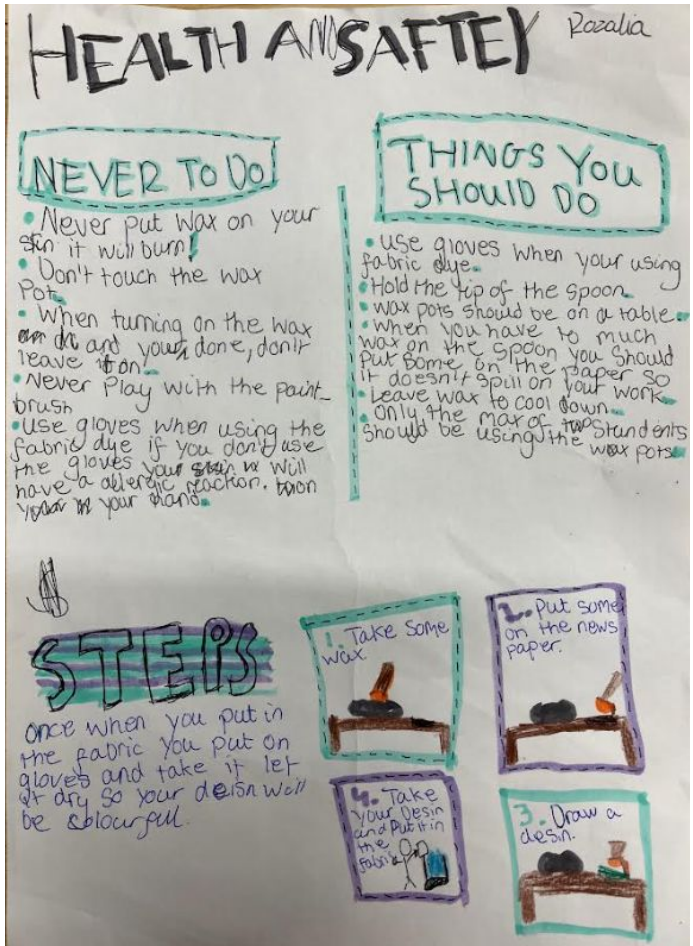 HEALTH AND SAFTEY
Rozalia
NEVER TO DO
• Never put wax on your
skin it will burn!
• Don't touch the wax
Pot.
• When turning on the wax
and your done, don't
leave it on.
• Never Play with the paint-
brush
• use gloves when using the
fabric dye if you don't use
the gloves your skin will
have a allergic reaction.
your hand.
THINGS YOU
SHOULD DO
• use gloves when your using
fabric dye.
• Hold the tip of the spoon.
• wax pots should be on a table.
• when you have to much
wax on the spoon you should
put some on the paper so
it doesn't spill on your work.
• Leave wax to cool down.
• only the max of two standents
should be using the wax pots.
STEPS
once when you put in
the fabric you put on
gloves and take it let
it dry so your deisn will
be colourfull.
1. Take some
wax.
2. Put some
on the news
paper.
3. Draw a
desin.
4. Take
your Desin
and Put it in
the
fabric